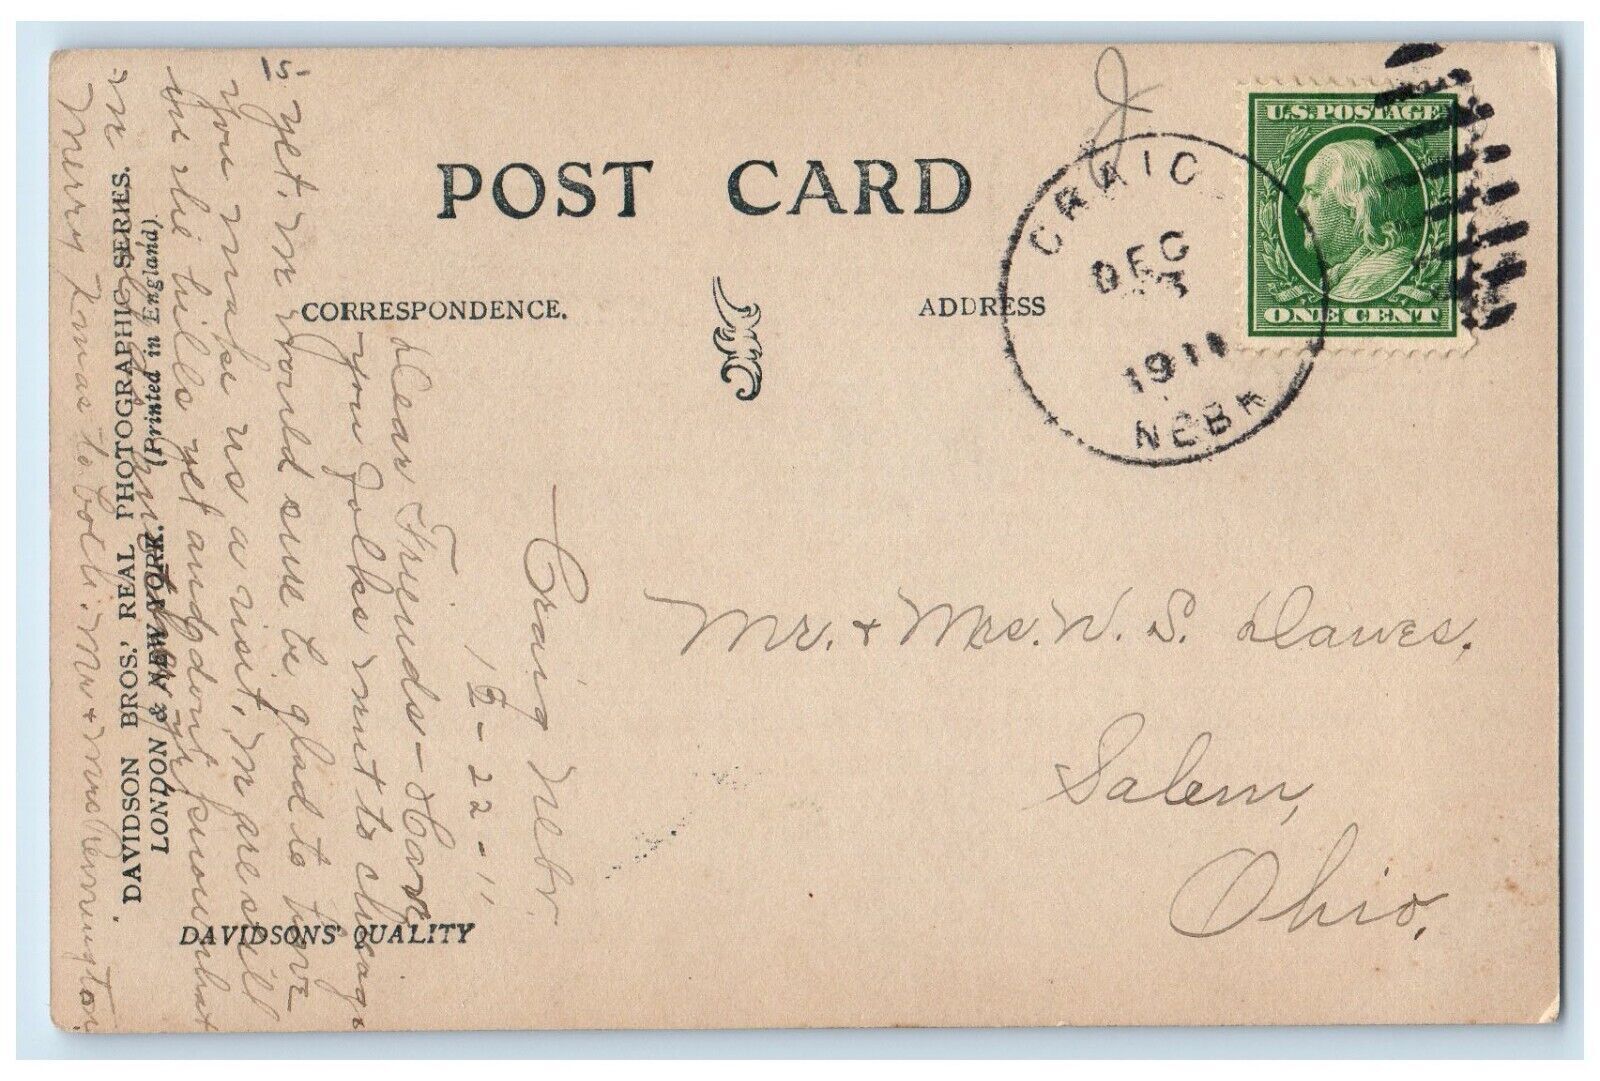 POST CARD
CORRESPONDENCE.
ADDRESS
CRAIG
DEC
1911
NEBR
U.S. POSTAGE
ONE CENT
Mr. + Mrs. W. S. Dawes.
Salem,
Ohio.
Craig Nebr.
12-22-11
Dear Friends - Have
you folks went to Chicago
yet, We would sure be glad to have
you make us a visit, We are still
in the hills yet and don't know what
Merry Xmas to both. Mr + Mrs Pennington.
15-
DAVIDSON BROS.' REAL PHOTOGRAPHIC SERIES.
LONDON & NEW YORK. (Printed in England).
DAVIDSONS' QUALITY